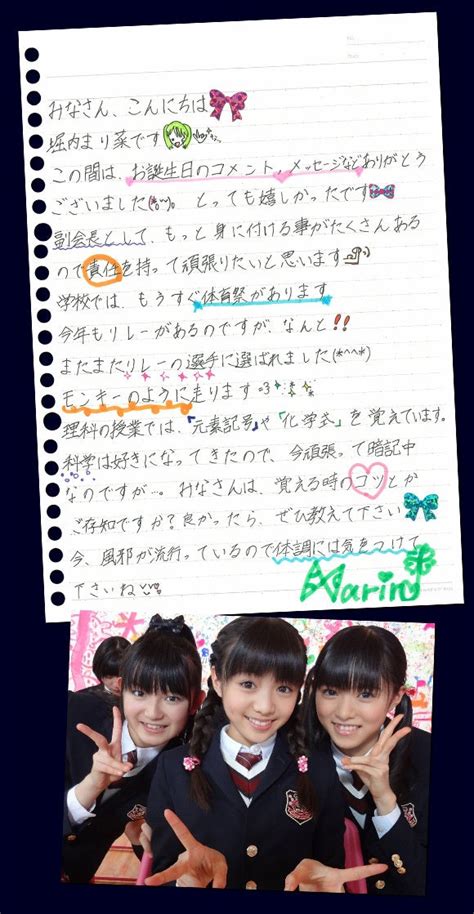 みなさん、こんにちは
堀内まり菜です
この間は、お誕生日のコメント、メッセージなどありがとう
ございました(*^o^*)。とっても嬉しかったです
副会長として、もっと身に付ける事がたくさんある
ので責任を持って頑張りたいと思います
学校では、もうすぐ体育祭があります
今年もリレーがあるのですが、なんと!!
またまたリレーの選手に選ばれました(*^^*)
モンキーのように走ります
理科の授業では、「元素記号」や「化学式」を覚えています。
科学は好きになってきたので、今頑張って暗記中
なのですが…。みなさんは、覚える時のコツとか
ご存知ですか?良かったら、ぜひ教えて下さい
今、風邪が流行っているので体調には気をつけて
下さいね
Marin